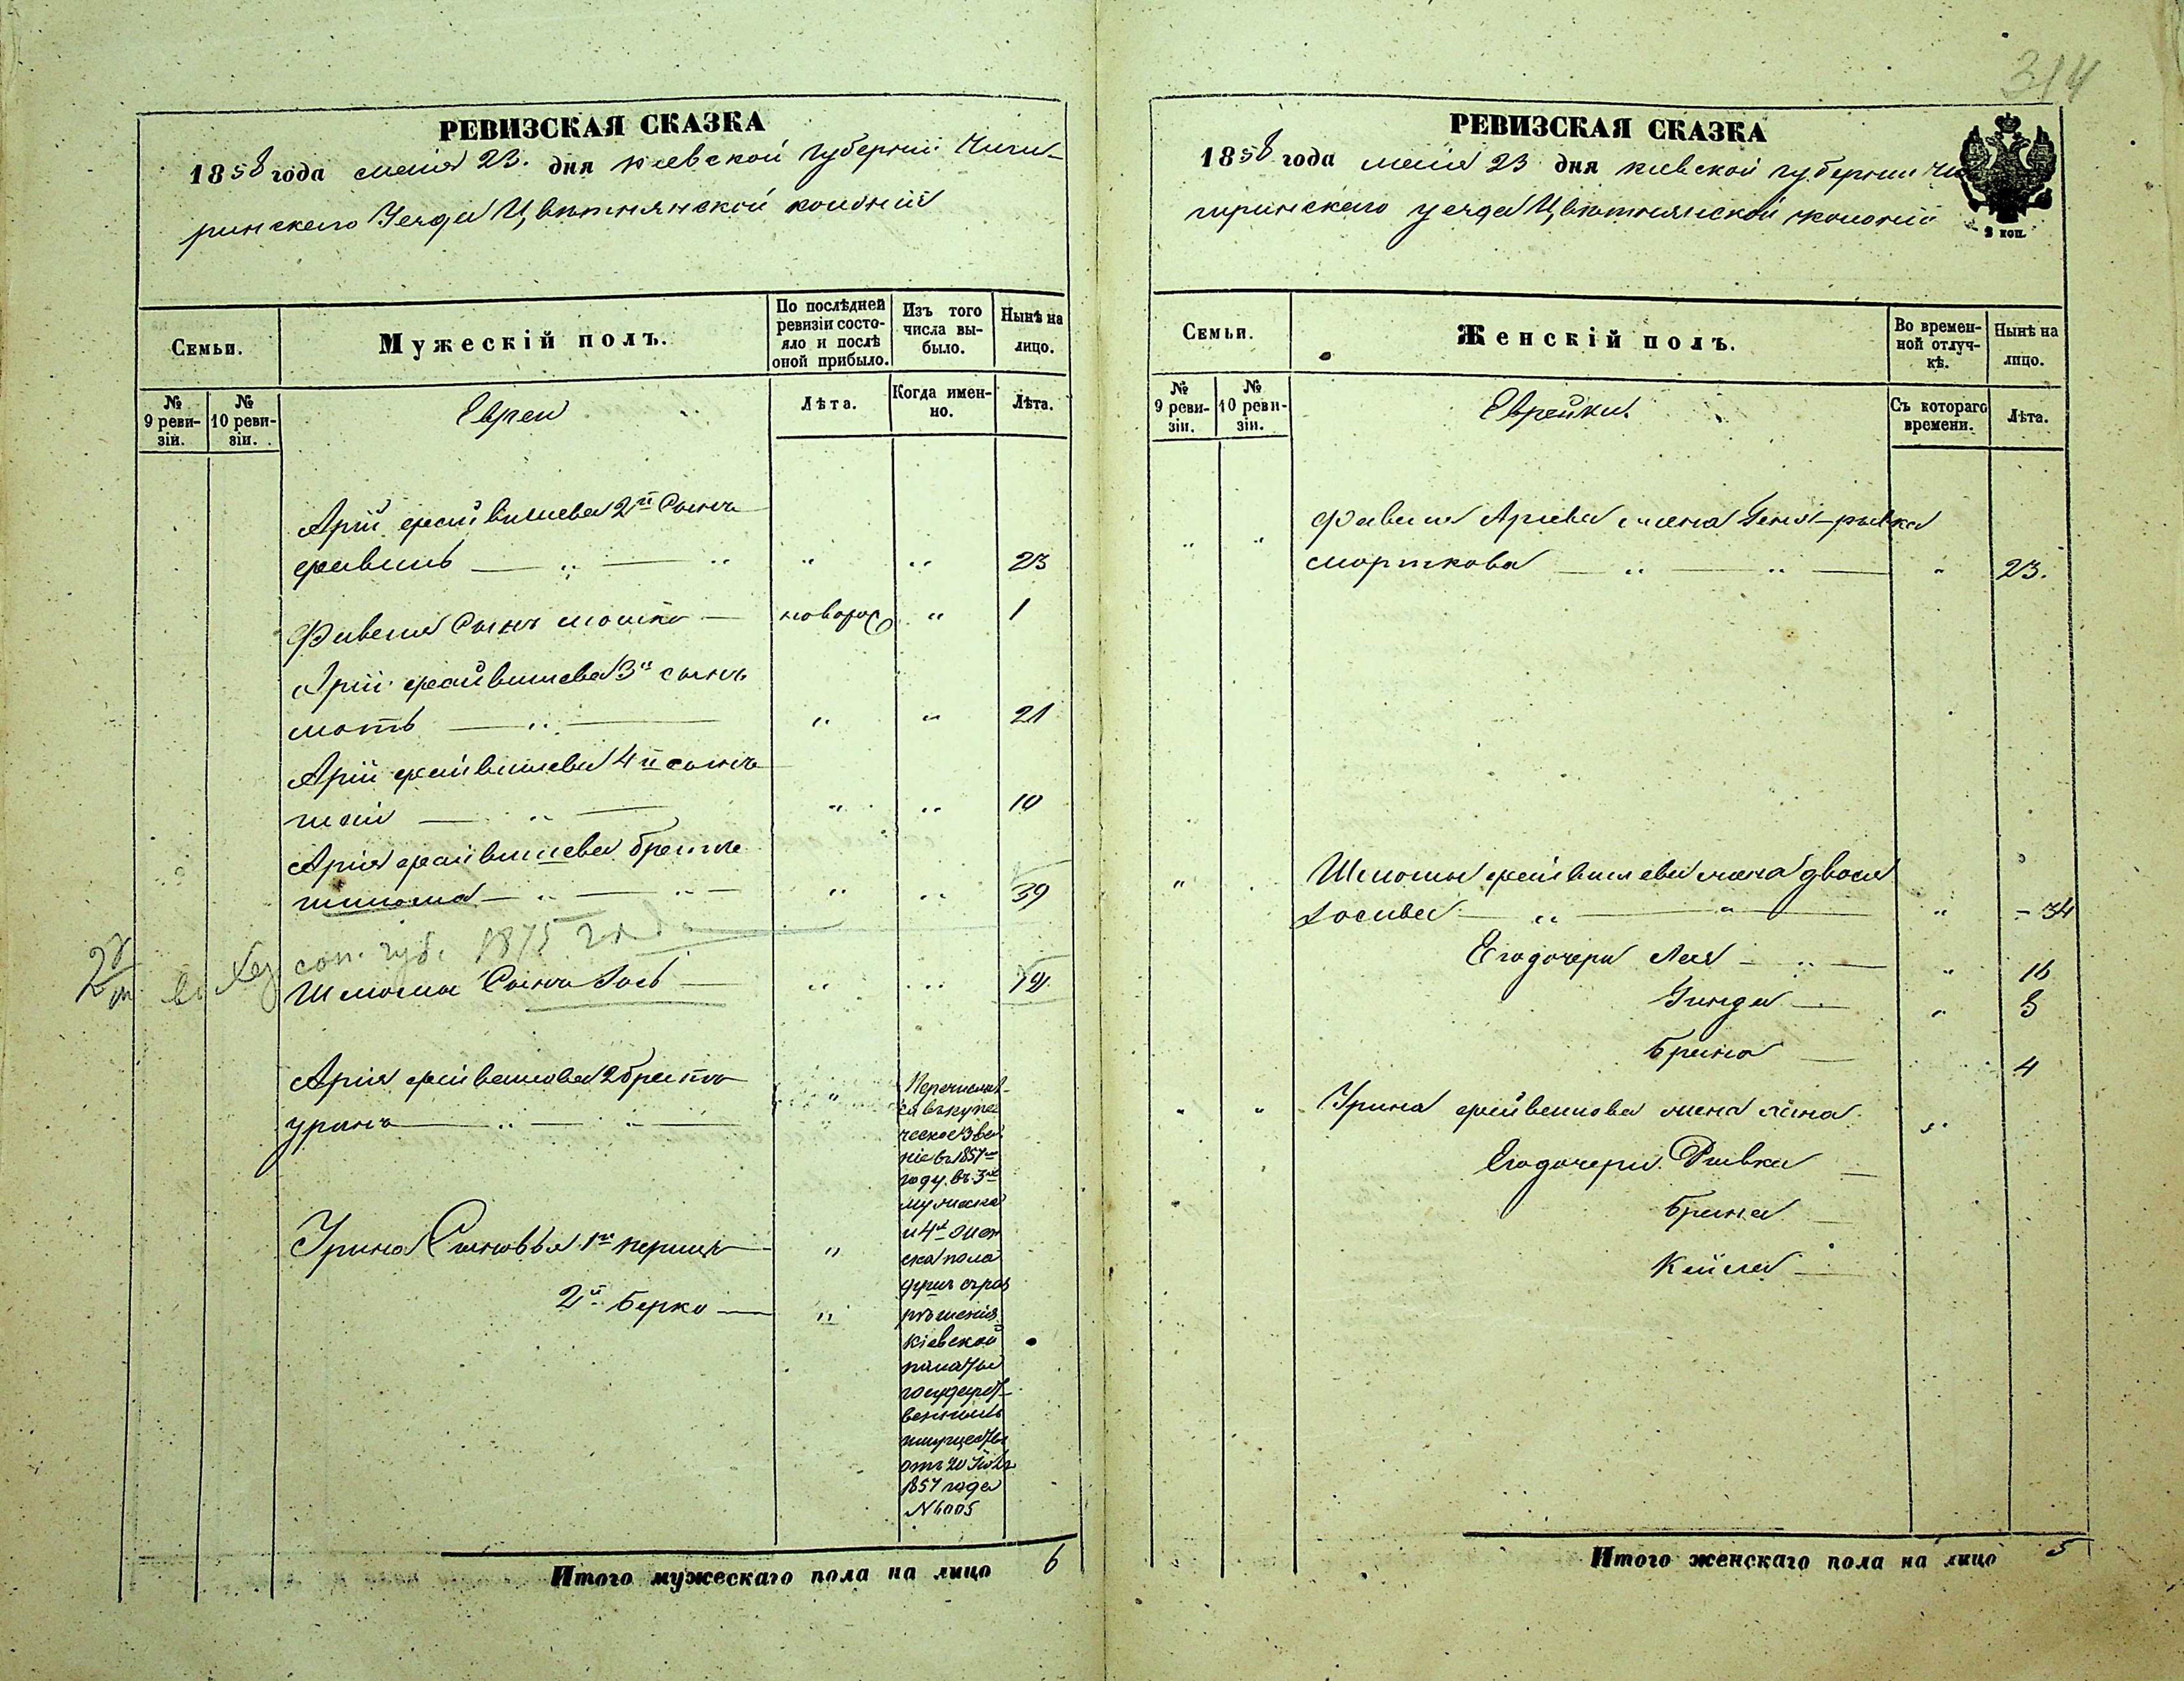 314
РЕВИЗСКАЯ СКАЗКА
1858 года мая 23. дня Киевской Губернии Чиги-
ринскаго Уезда Цветнянской колонии
Семьи.
Мужескій полъ.
По послѣдней ревизіи состо-яло и послѣ оной прибыло.
Изъ того числа вы-было.
Нынѣ на лицо.
№ 9 реви-зіи.
№ 10 реви-зіи.
Евреи
Лѣта.
Когда имен-но.
Лѣта.
Арій Файвишева 2й Сынъ
Фавишъ 23
Фавиша Сынъ Мошко новорож 1
Арій Файвишева 3й сынъ
Моть 21
Арій Файвишева 4й сынъ
10
Арія Файвишева братъ
Шлиома 39
1875 года
Шлиомы Сынъ Іось
Арія Файвишова 2 братъ
Уринъ
Перечислил-
ся въ купе-
ческое зва-
ніе въ 1857м
году въ 3й
мужска
и 4й жен
ска пола
душъ съ раз
рѣшенія
Кіевской
палаты
государст-
венныхъ
имуществъ
отъ 20
1857 года
№ 6005
Урина Сыновья 1й
2й Берко
Итого мужескаго пола на лицо 6
РЕВИЗСКАЯ СКАЗКА
1858 года мая 23 дня Киевской губернии Чи
гиринскаго уезда Цветнянской колонии
3 коп.
Семьи.
Женскій полъ.
Во времен-ной отлуч-кѣ.
Нынѣ на лицо.
№ 9 реви-зіи.
№ 10 реви-зіи.
Еврейки.
Съ котораго времени.
Лѣта.
Фавиша Ариева жена Геня-рывка
Морткова 23.
Шлиомы Файвишева жена Двося
Іосиева 34
Его дочери Лея 16
Гинда 8
Брана 4
Урина Файвишова жена Хана
Его дочери Рывка
Брана
Кейла
Итого женскаго пола на лицо 5